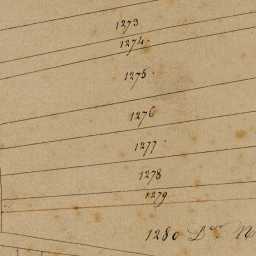 1273
1274.
1275.
1276
1277.
1278
1279
1280